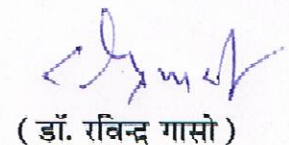 ( डॉ. रविन्द्र गासो )